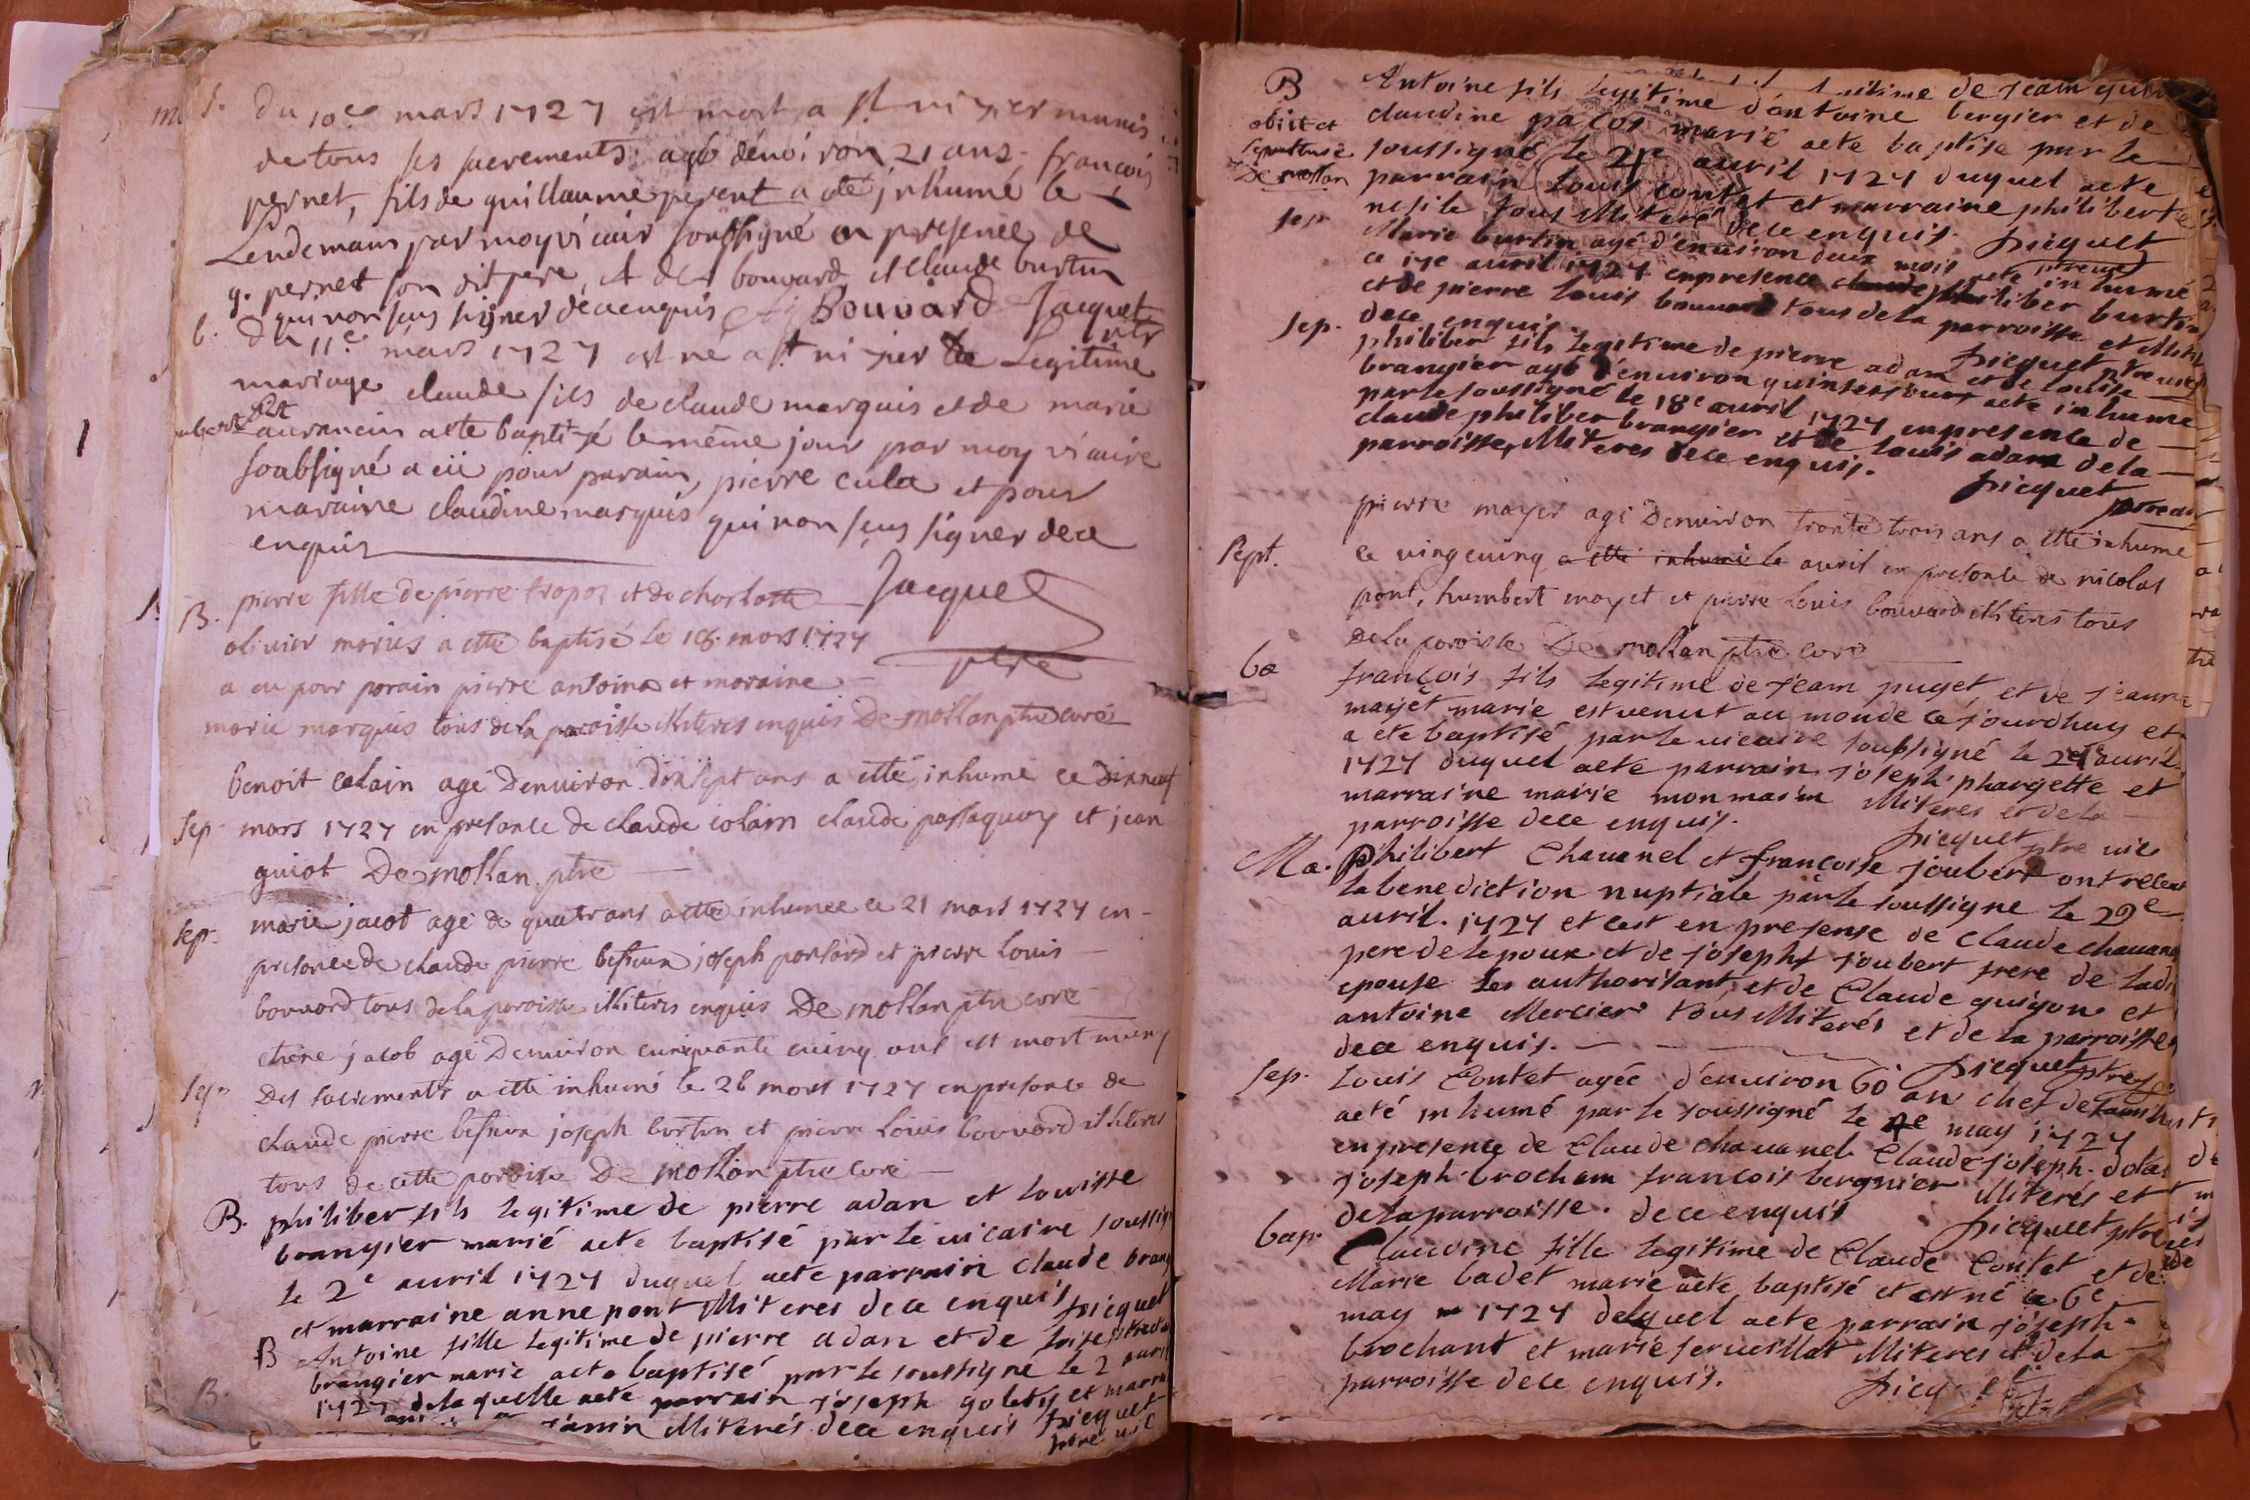 m s. du 10e mars 1727 est mort a st nizier munis
de tous ses sacrements agé dénviron 21 ans françois
pernet, fils de guillaume pernet a eté jnhumé le
Lendemain par moy vicair soussigné en presence de
g. pernet son dit pere, et de bouvard et claude burtin
qui non sçus signer de ce enquis Bouvard Jacquet
vic
b. du 11e mars 1727 est né a st nizier de Legitime
mariage claude fils de claude marquis et de marie
aurancin a ete baptizé le même jour par moy vicaire
soubsigné a eü pour parain, pierre cula et pour
maraine claudine marquis qui non sçus signer de ce
enquis
Jacquet
B. pierre fille de pierre tropoz et de charlotte
olivier mariés a etté baptisé le 18. mars 1727
ptre
a eu pour parain pierre antoine et maraine
marie marquis tous de la paroisse illiteres enquis De mollan ptre curé
benoit colain agé Denuiron dixsept ans a etté inhumé ce dixneuf
sep. mars 1727 en presance de claude colain claude passaquay et jean
guiot De mollan ptre
sep. marie jacot agé de quatrans a etté inhumée ce 21 mars 1727 en
presance de claude pierre besson joseph ponsard et pierre Louis
bouuard tous de la paroisse illiteres enquis De mollan ptre curé
etiene jacob agé Denuiron cinquante cinq ans est mort muny
sep. Des sacrements a etté inhumé le 26 mars 1727 en presance de
claude pierre joseph burtin et pierre Louis bouuard illiteres
tous de cette paroisse De mollan ptre curé
B. philiber fils legitime de pierre adan et Louisse
brangier marié a ete baptisé par le uicaire soussig
le 2e auril 1727 duquel a ete parrain claude brang
et marraine anne pont illiteres de ce enquis picquet
B Antoine fille legitime de pierre adan et de
brangier marie a ete baptisé par le soussigne le 2 auri
B. 1727 de la quelle a ete parrain joseph golety et marra
janin illiterés de ce enquis picquet
ptre uic
legitime de jean
B Antoine fils legitime d'antoine bergier et de
obiit et claudine pacos marié a ete baptise par le
sepulturé soussigné le auril 1727 duquel a ete
De mollan parrain Louis contet et marraine philiberte
tous illiterés de ce enquis. picquet
sep. Marie burtin agé d'enuiron deux mois a ete inhumé
ce 17e auril 1727 en presence philiber burtin
et de pierre Louis bouuard tous de la parroisse et illit
de ce enquis. picquet ptre uic
sep. philiber fils legitime de pierre adan et de louise
brangier agé d'enuiron quinse jours a ete inhume
par le soussigné le 18e auril 1727 en presence de
claude philiber brangier et de Louis adan de la
parroisse, illiteres de ce enquis.
picquet
ptre uic
pierre mayet agé Denuiron trante trois ans a etté inhume
sept. ce uingcuinq a etté inhumé le auril en presance de nicolas
pont, humbert mayet et pierre Louis bouuard illiteres tous
de la paroisse De mollan ptre curé
ba françois fils legitime de jean puget, et de jeanne
mayet marie est uenut au monde ce jourdhuy et
a ete baptisé par le uicaire soubsigné le auril
1727 duquel a ete parrain joseph phargette et
marraine marie monmain illiteres et de la
parroisse de ce enquis.
picquet ptre uic
Ma. philibert Chauanel et françoise joubert ont receut
la benediction nuptiale par le soussigne le 29e
auril. 1727 et cest en presense de claude chauanel
pere de lepoux et de joseph joubert frere de ladi
epouse les authorisant, et de Claude guigon et
antoine Mercier tous illiterés et de la parroisse
de ce enquis. picquet ptre
sep. Louis Contet agée d'enuiron 60 an chef de
a eté inhumé par le soussigné le may 1727
en presence de Claude chauanel Claude joseph
joseph brocham francois bergnier illiterés et
de la parroisse. de ce enquis picquet ptre
bap. Claudine fille legitime de Claude Contet et de
Marie badet marie a ete baptisé et est né ce 6e
may 1727 delquel a ete parrain joseph
brochant et marie seruillat illiteres et de la
parroisse de ce enquis.